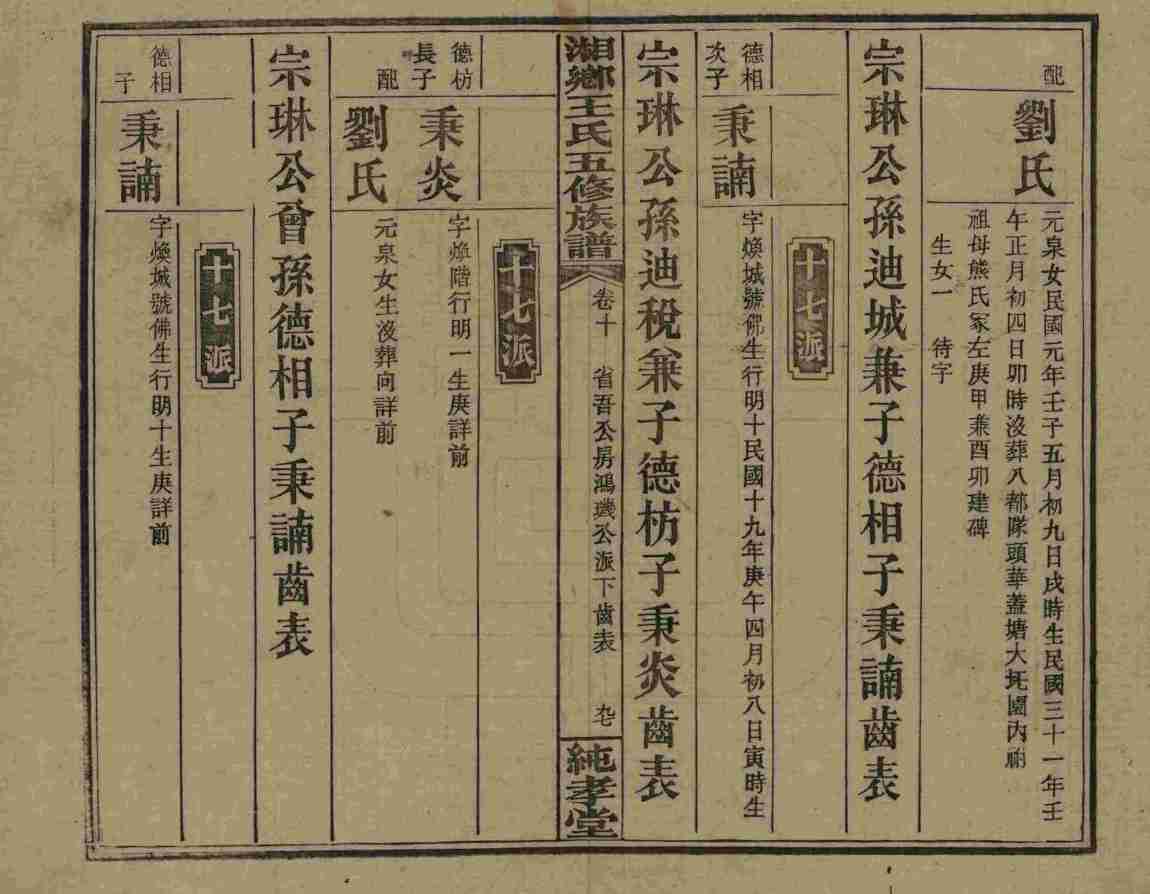 配
劉氏
元泉女民國元年壬子五月初九日戌時生民國三十一年壬
午正月初四日卯時沒葬八都隊頭華蓋塘大坵園內祔
祖母熊氏冢左庚甲兼酉卯建碑
生女一 待字
宗琳公孫迪城兼子德相子秉諵齒表
十七派
德相
次子
秉諵
字煥城號佛生行明十民國十九年庚午四月初八日寅時生
宗琳公孫迪稅兼子德枋子秉炎齒表
湘鄉王氏五修族譜
卷十 省吾公房鴻璣公派下齒表
純孝堂
十七派
德枋
長子
秉炎
字煥階行明一生庚詳前
配
劉氏
元泉女生沒葬向詳前
宗琳公曾孫德相子秉諵齒表
十七派
德相
子
秉諵
字煥城號佛生行明十生庚詳前